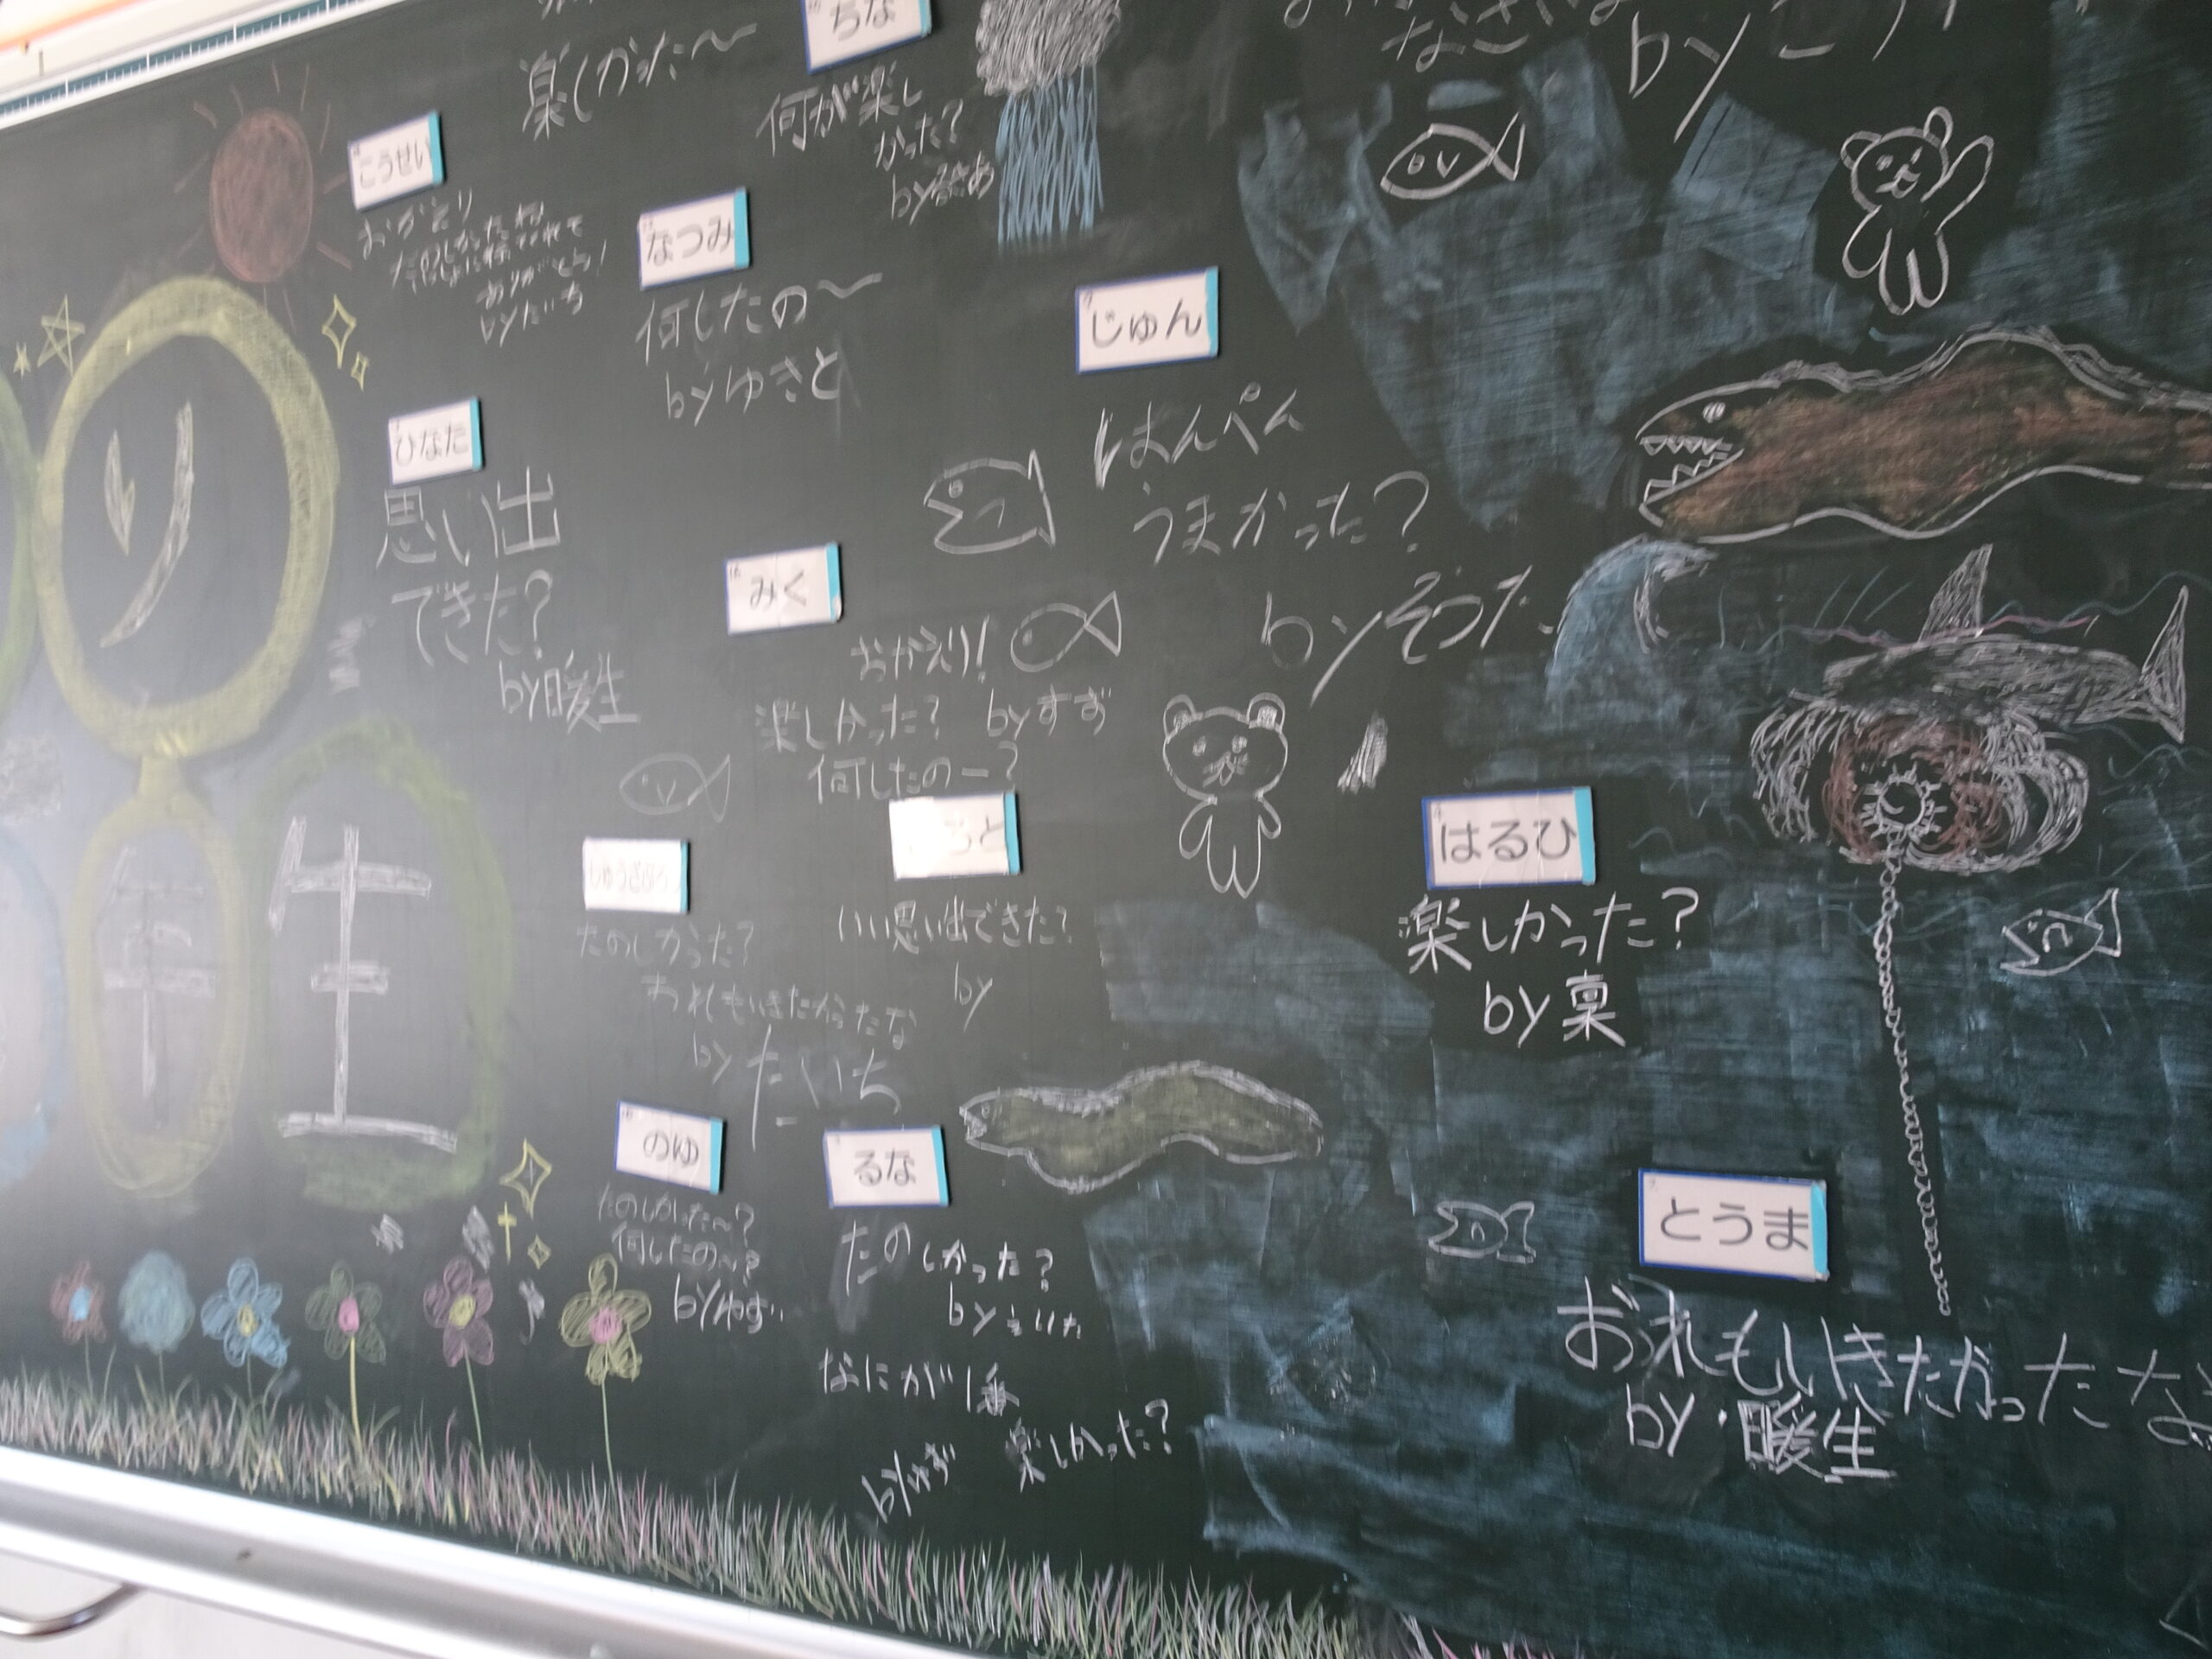 楽しかった〜
ちな
何が楽し
かった?
なさい
by
こうせい
ありがとう!
byたいち
なつみ
何したの〜
byゆきと
じゅん
はんぺん
うまかった?
byそうた
リ
ひなた
思い出
できた?
by暖生
みく
おかえり!
楽しかった? byすず
何したのー?
年
生
ろと
いい思い出できた?
by
たのしかった?
おれもいきたかったな
byたいち
はるひ
楽しかった?
by凛
のゆ
たのしかった〜?
何したの〜?
るな
たのしかった?
なにが1番
楽しかった?
とうま
おれもいきたかったな
by・暖生